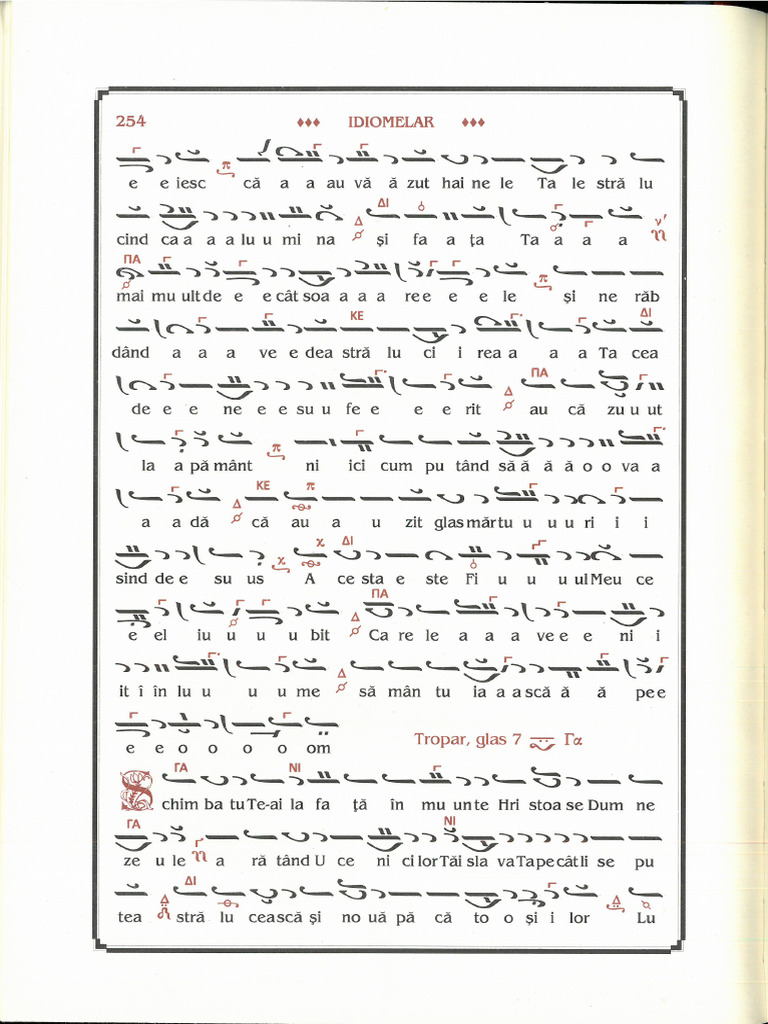 254 ♦♦♦ IDIOMELAR ♦♦♦
e e iesc că a a au vă ă zut hai ne le Ta le stră lu
cind ca a a a lu u mi na și fa a ța Ta a a a
mai mu ult de e e cât soa a a a re e e e le și ne răb
dând a a a ve e dea stră lu ci i rea a a a Ta cea
de e e ne e e su u fe e e e rit au că zu u ut
la a pă mânt ni ici cum pu tând să ă ă ă o o va a
a a dă că au a u zit glas măr tu u u u ri i i
sind de e su us A ce sta e ste Fi u u u ul Meu ce
e el iu u u u bit Ca re le a a a ve e e ni i
it î în lu u u u me să mân tu ia a a scă ă ă pe e
e e o o o o om Tropar, glas 7 Γα
Schim ba tu Te-ai la fa ță în mu un te Hri stoa se Dum ne
ze u le a ră tând U ce ni ci lor Tăi sla va Ta pe cât li se pu
tea stră lu cească și no uă pă că to o și i lor Lu